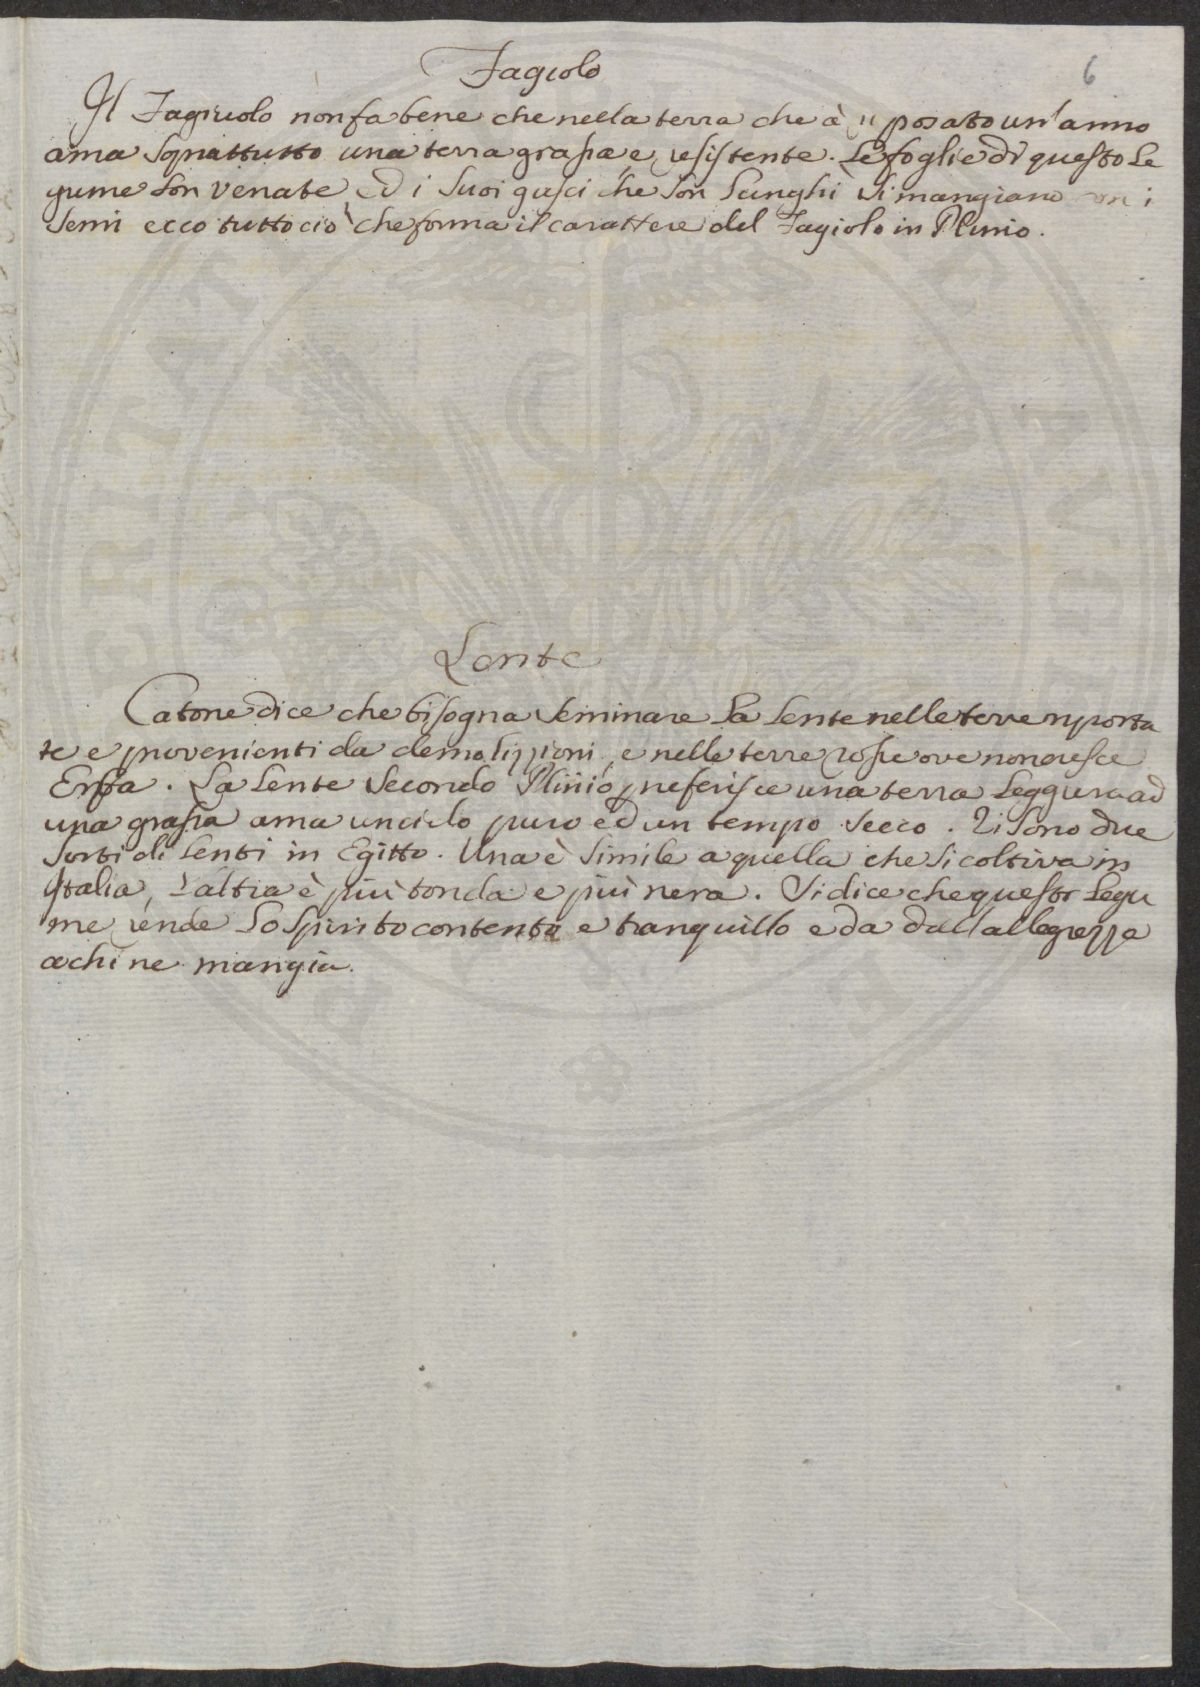 6
Fagiolo
Il Fagiuolo non fa bene che nella terra che à riposato un'anno
ama sopnattutto una terra grassa e resistente. Le foglie di questo le
gume son venate, ed i suoi gusci che son lunghi si mangiano con i
semi ecco tutto ciò che forma il carattere del Fagiolo in Plinio.
Lente
Catone dice che bisogna seminare la lente nelle terre riporta
te e provenienti da demolizzioni, e nelle terre rosse ove non cresce
Erba. La Lente secondo Plinio preferisce una terra leggiera ad
una grassa ama un cielo puro ed un tempo secco. Vi sono due
sorti di lenti in Egitto. Una è simile a quella che si coltiva in
Italia, l'altra è più tonda e più nera. Si dice che questo legu
me rende lo spirito contento e tranquillo e da dell allegrezze
a chi ne mangia.